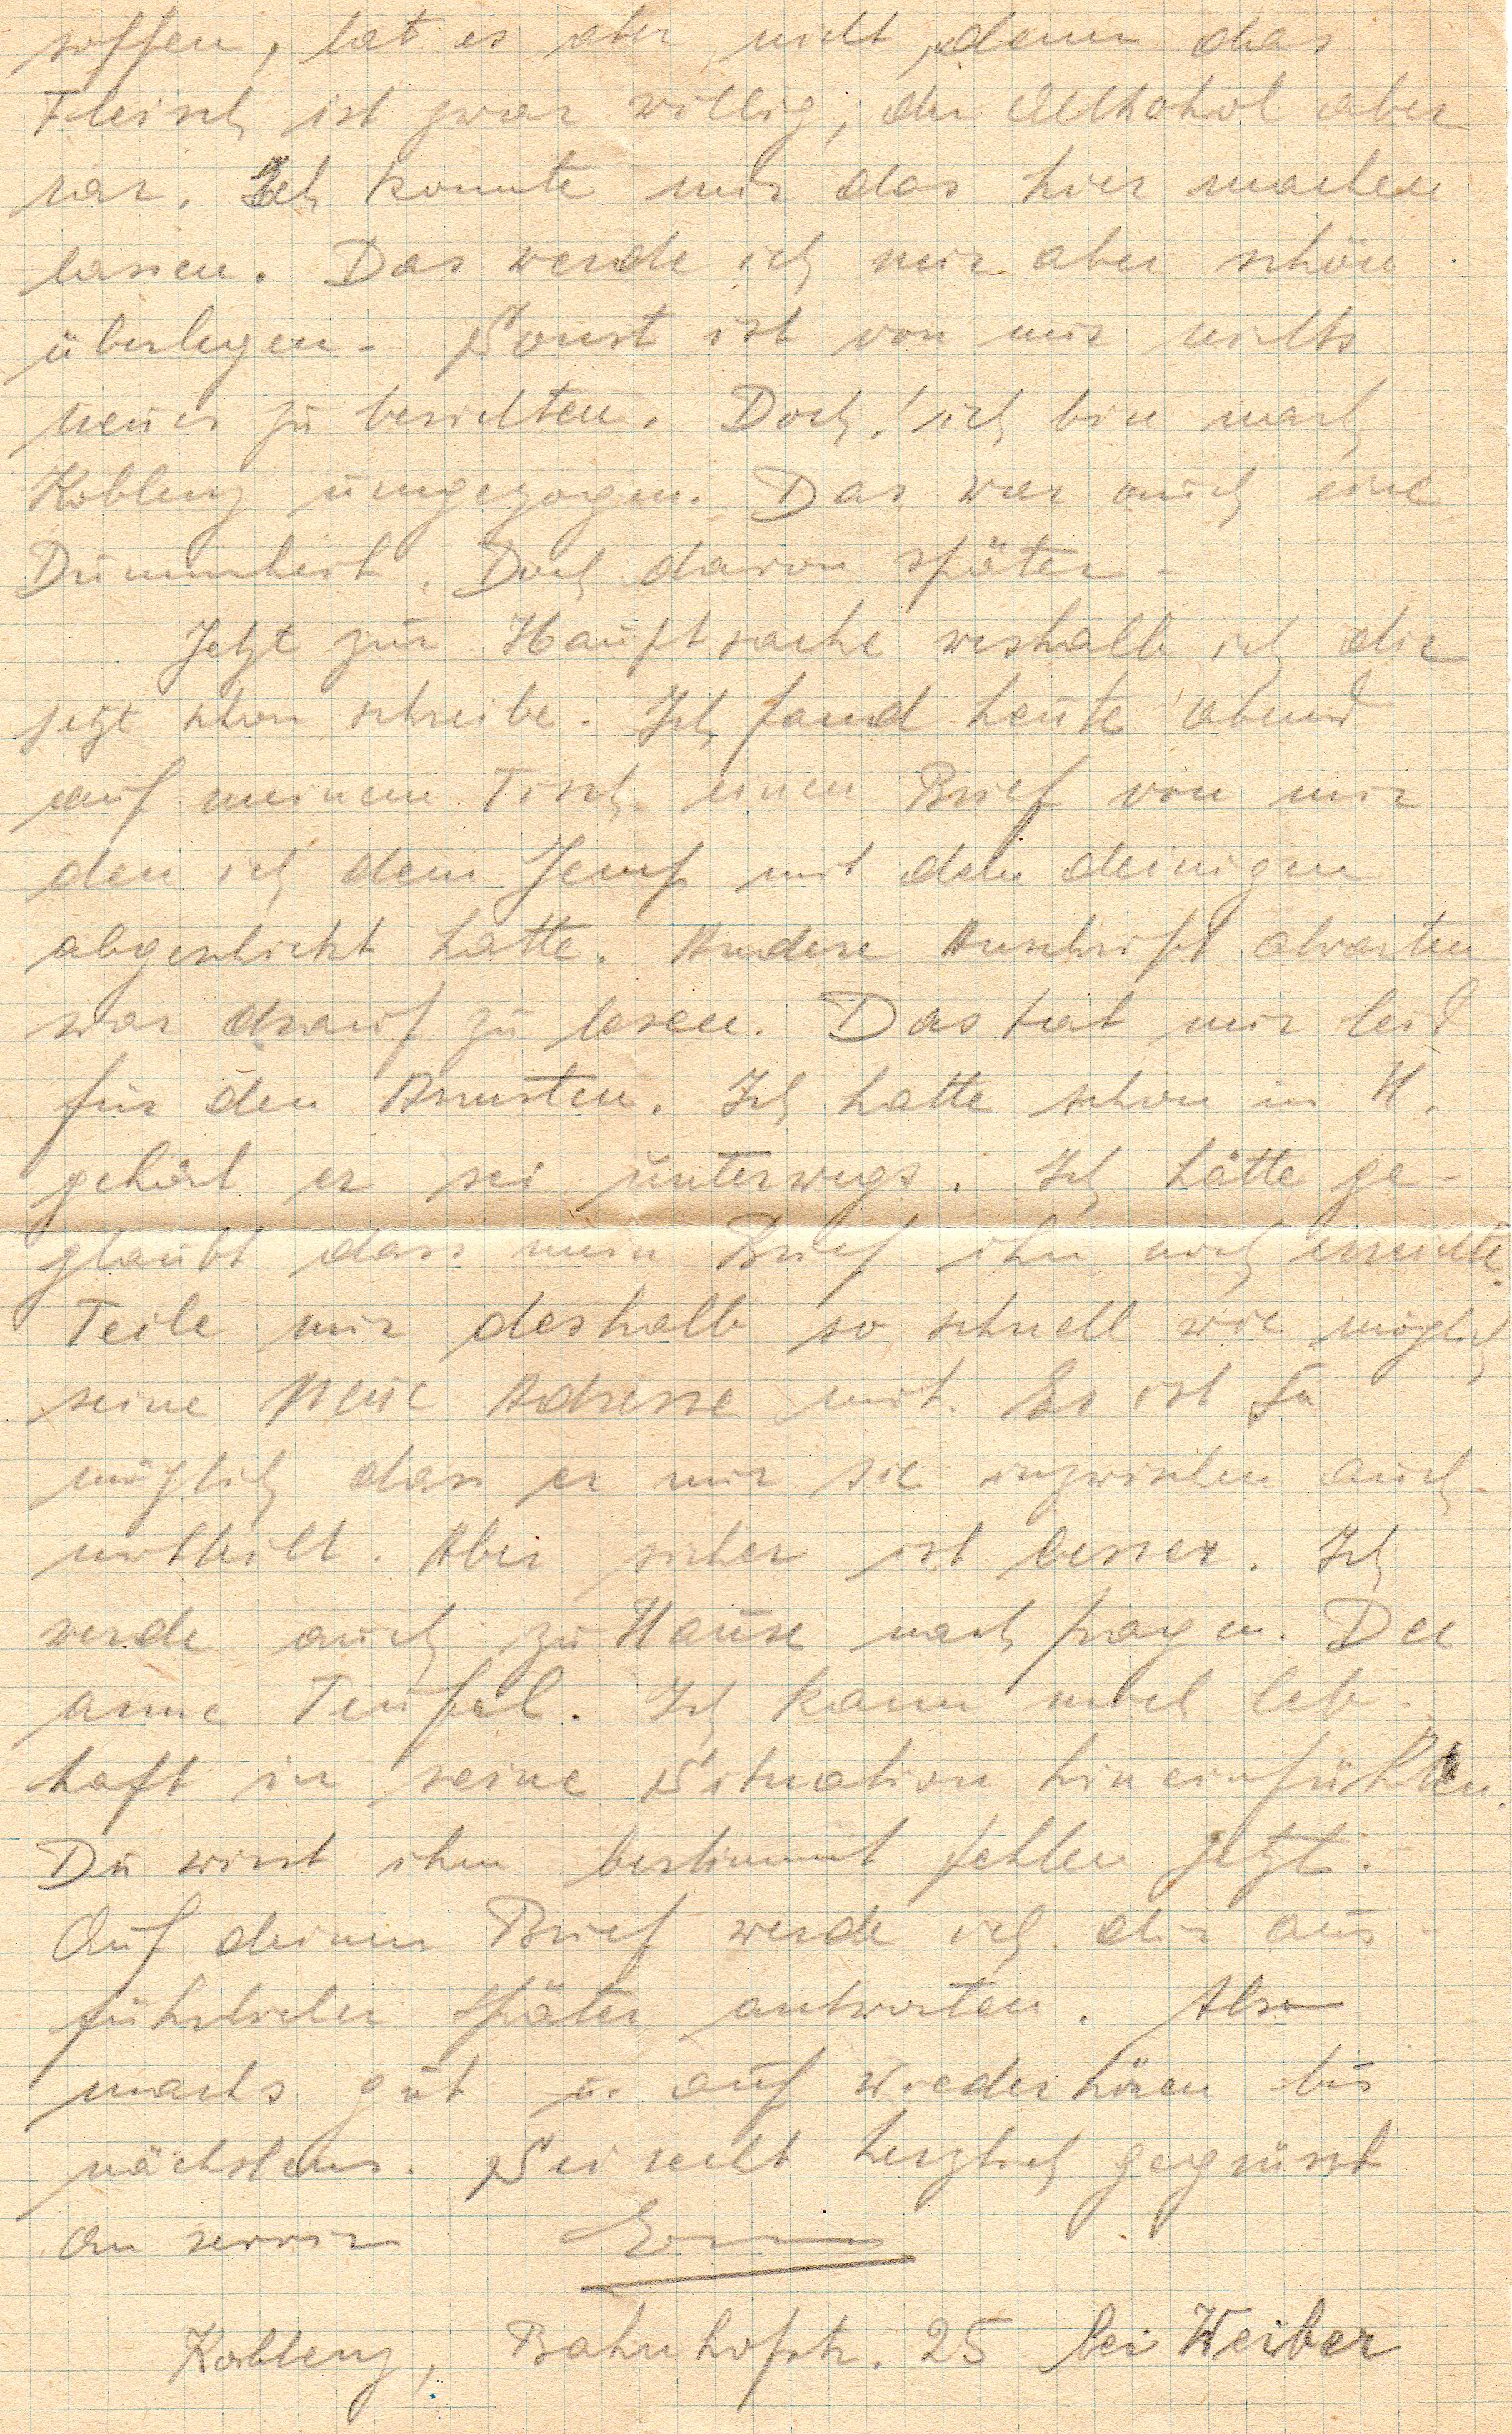 soffen, hat es aber nicht, denn das
Fleisch ist zwar willig, der Alkohol aber
rar. Ich konnte mir das hier machen
lassen. Das werde ich mir aber schön
überlegen. Sonst ist von mir nichts
neues zu berichten. Doch! ich bin nach
Koblenz umgezogen. Das war auch eine
Dummheit. Doch davon später.
Jetzt zur Hauptsache weshalb ich dir
jetzt schon schreibe. Ich fand heute abend
auf meinem Tisch einen Brief von mir
den ich dem Jemp mit dem deinigen
abgeschickt hatte. Andere Anschrift abwarten
war drauf zu lesen. Das tat mir leid
für den Ärmsten. Ich hatte schon in H.
gehört er sei unterwegs. Ich hätte ge-
glaubt dass mein Brief ihn noch erreichte.
Teile mir deshalb so schnell wie möglich
seine neue Adresse mit. Es ist ja
möglich dass er mir sie inzwischen auch
mitteilt. Aber sicher ist besser. Ich
werde auch zu Hause nach fragen. Der
arme Teufel. Ich kann mich leb-
haft in seine Situation hineinfühlen.
Du wirst ihm bestimmt fehlen jetzt.
Auf deinen Brief werde ich dir aus-
führlicher später antworten. Also
machs gut u. auf wiederhören bis
nächstens. Sei recht herzlich gegrüsst
Au revoir
Koblenz, Bahnhofstr. 25 bei Weiber